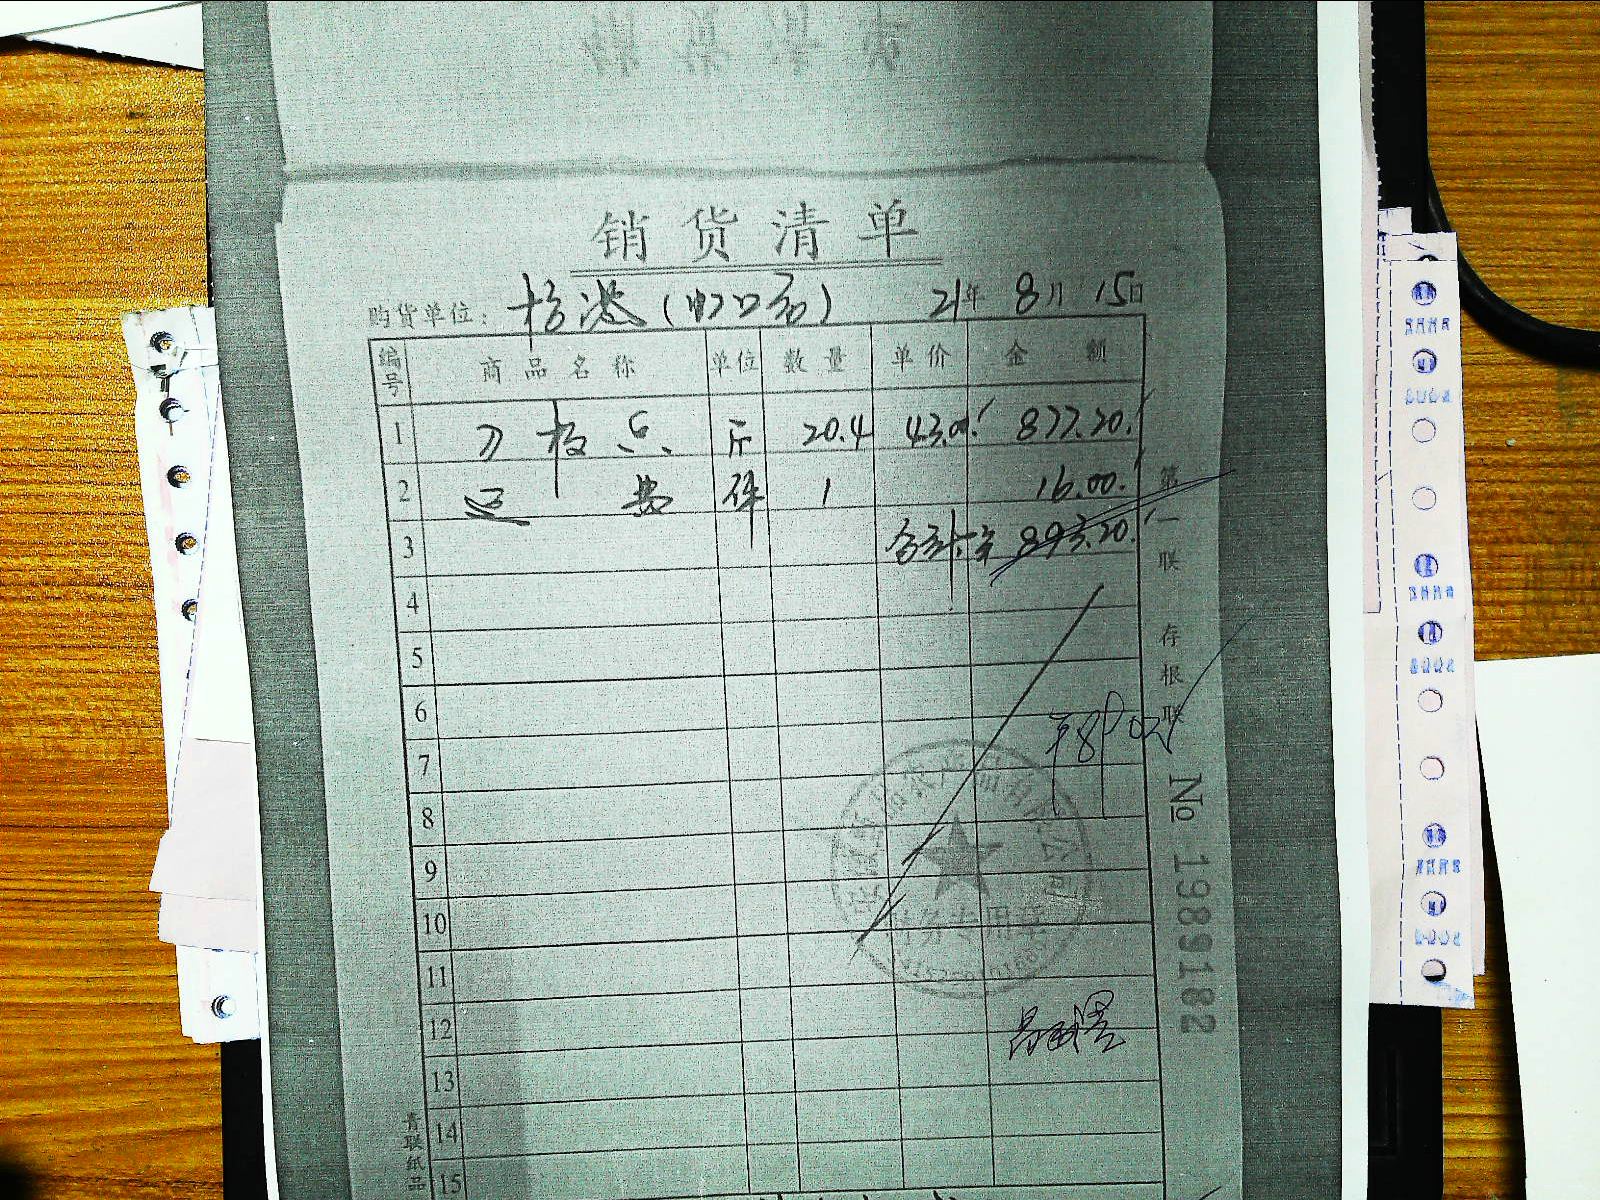 销货清单
购货单位: 21年 8月 15日
编号 商品名称 单位 数量 单价 金额
1 刀板 斤 20.4 43.00 877.20
2 运费 件 1 16.00
3 合计: 893.20
4
5
6
7
8
9
10
11
12
13
14
15
第一联 存根联
№ 1989182
财务专用章
青联纸品